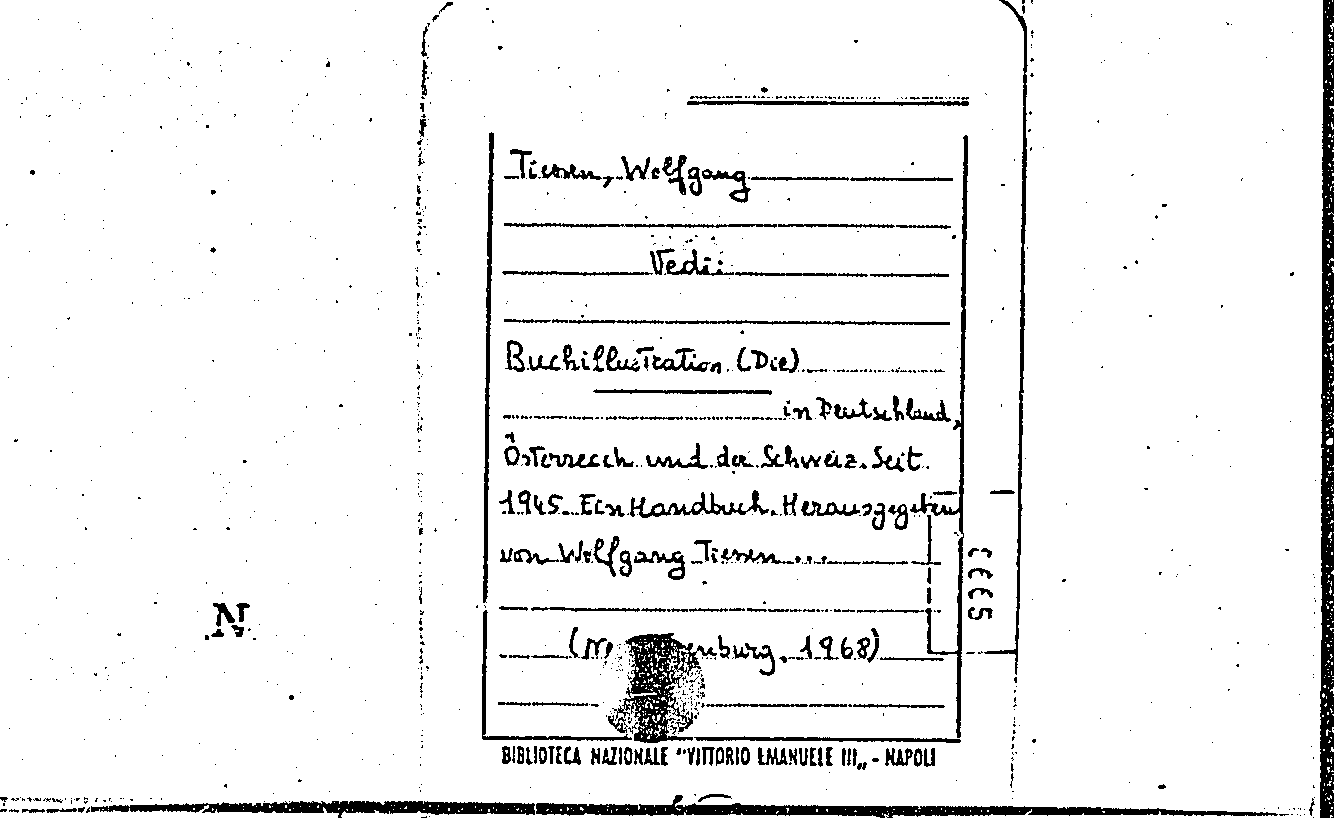 Tiessen, Wolfgang
Vedi:
Buchillustration (Die)
in Deutschland,
Österreich und der Schweiz. Seit
1945. Ein Handbuch. Herausgegeben
von Wolfgang Tiessen ...
1968)
BIBLIOTECA NAZIONALE "VITTORIO EMANUELE III„ - NAPOLI
N